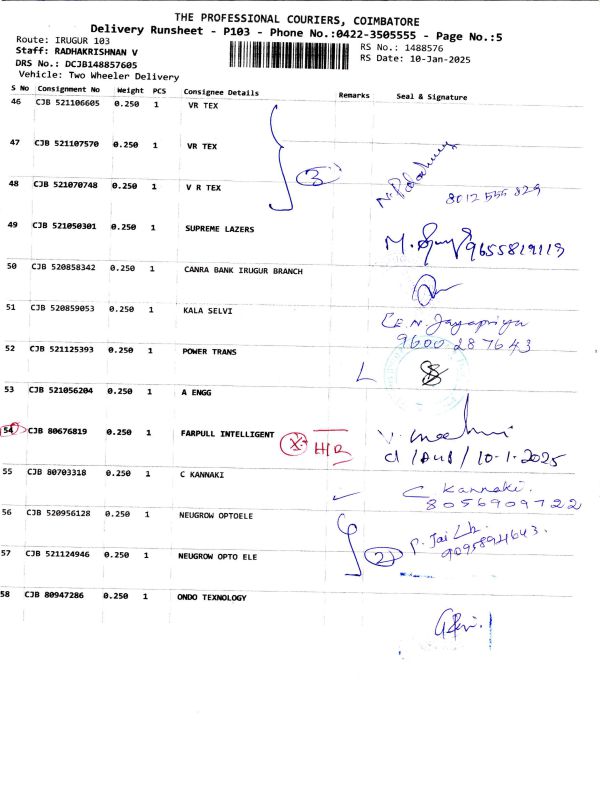 THE PROFESSIONAL COURIERS, COIMBATORE
Delivery Runsheet - P103 - Phone No.:0422-3505555 - Page No.:5
Route: IRUGUR 103
RS No.: 1488576
Staff: RADHAKRISHNAN V
RS Date: 10-Jan-2025
DRS No.: DCJB148857605
Vehicle: Two Wheeler Delivery
S No Consignment No Weight PCS Consignee Details Remarks Seal & Signature
46 CJB 521106605 0.250 1 VR TEX
47 CJB 521107570 0.250 1 VR TEX
3
48 CJB 521070748 0.250 1 V R TEX
8012555829
49 CJB 521050301 0.250 1 SUPREME LAZERS
9655819119
50 CJB 520858342 0.250 1 CANRA BANK IRUGUR BRANCH
51 CJB 520859053 0.250 1 KALA SELVI
Jayapriya
9600287643
52 CJB 521125393 0.250 1 POWER TRANS
53 CJB 521056204 0.250 1 A ENGG
54 CJB 80676819 0.250 1 FARPULL INTELLIGENT X H/R
10-1-2025
55 CJB 80703318 0.250 1 C KANNAKI
C Kannaki.
8056909722
56 CJB 520956128 0.250 1 NEUGROW OPTOELE
9095894643.
57 CJB 521124946 0.250 1 NEUGROW OPTO ELE
2
58 CJB 80947286 0.250 1 ONDO TEXNOLOGY